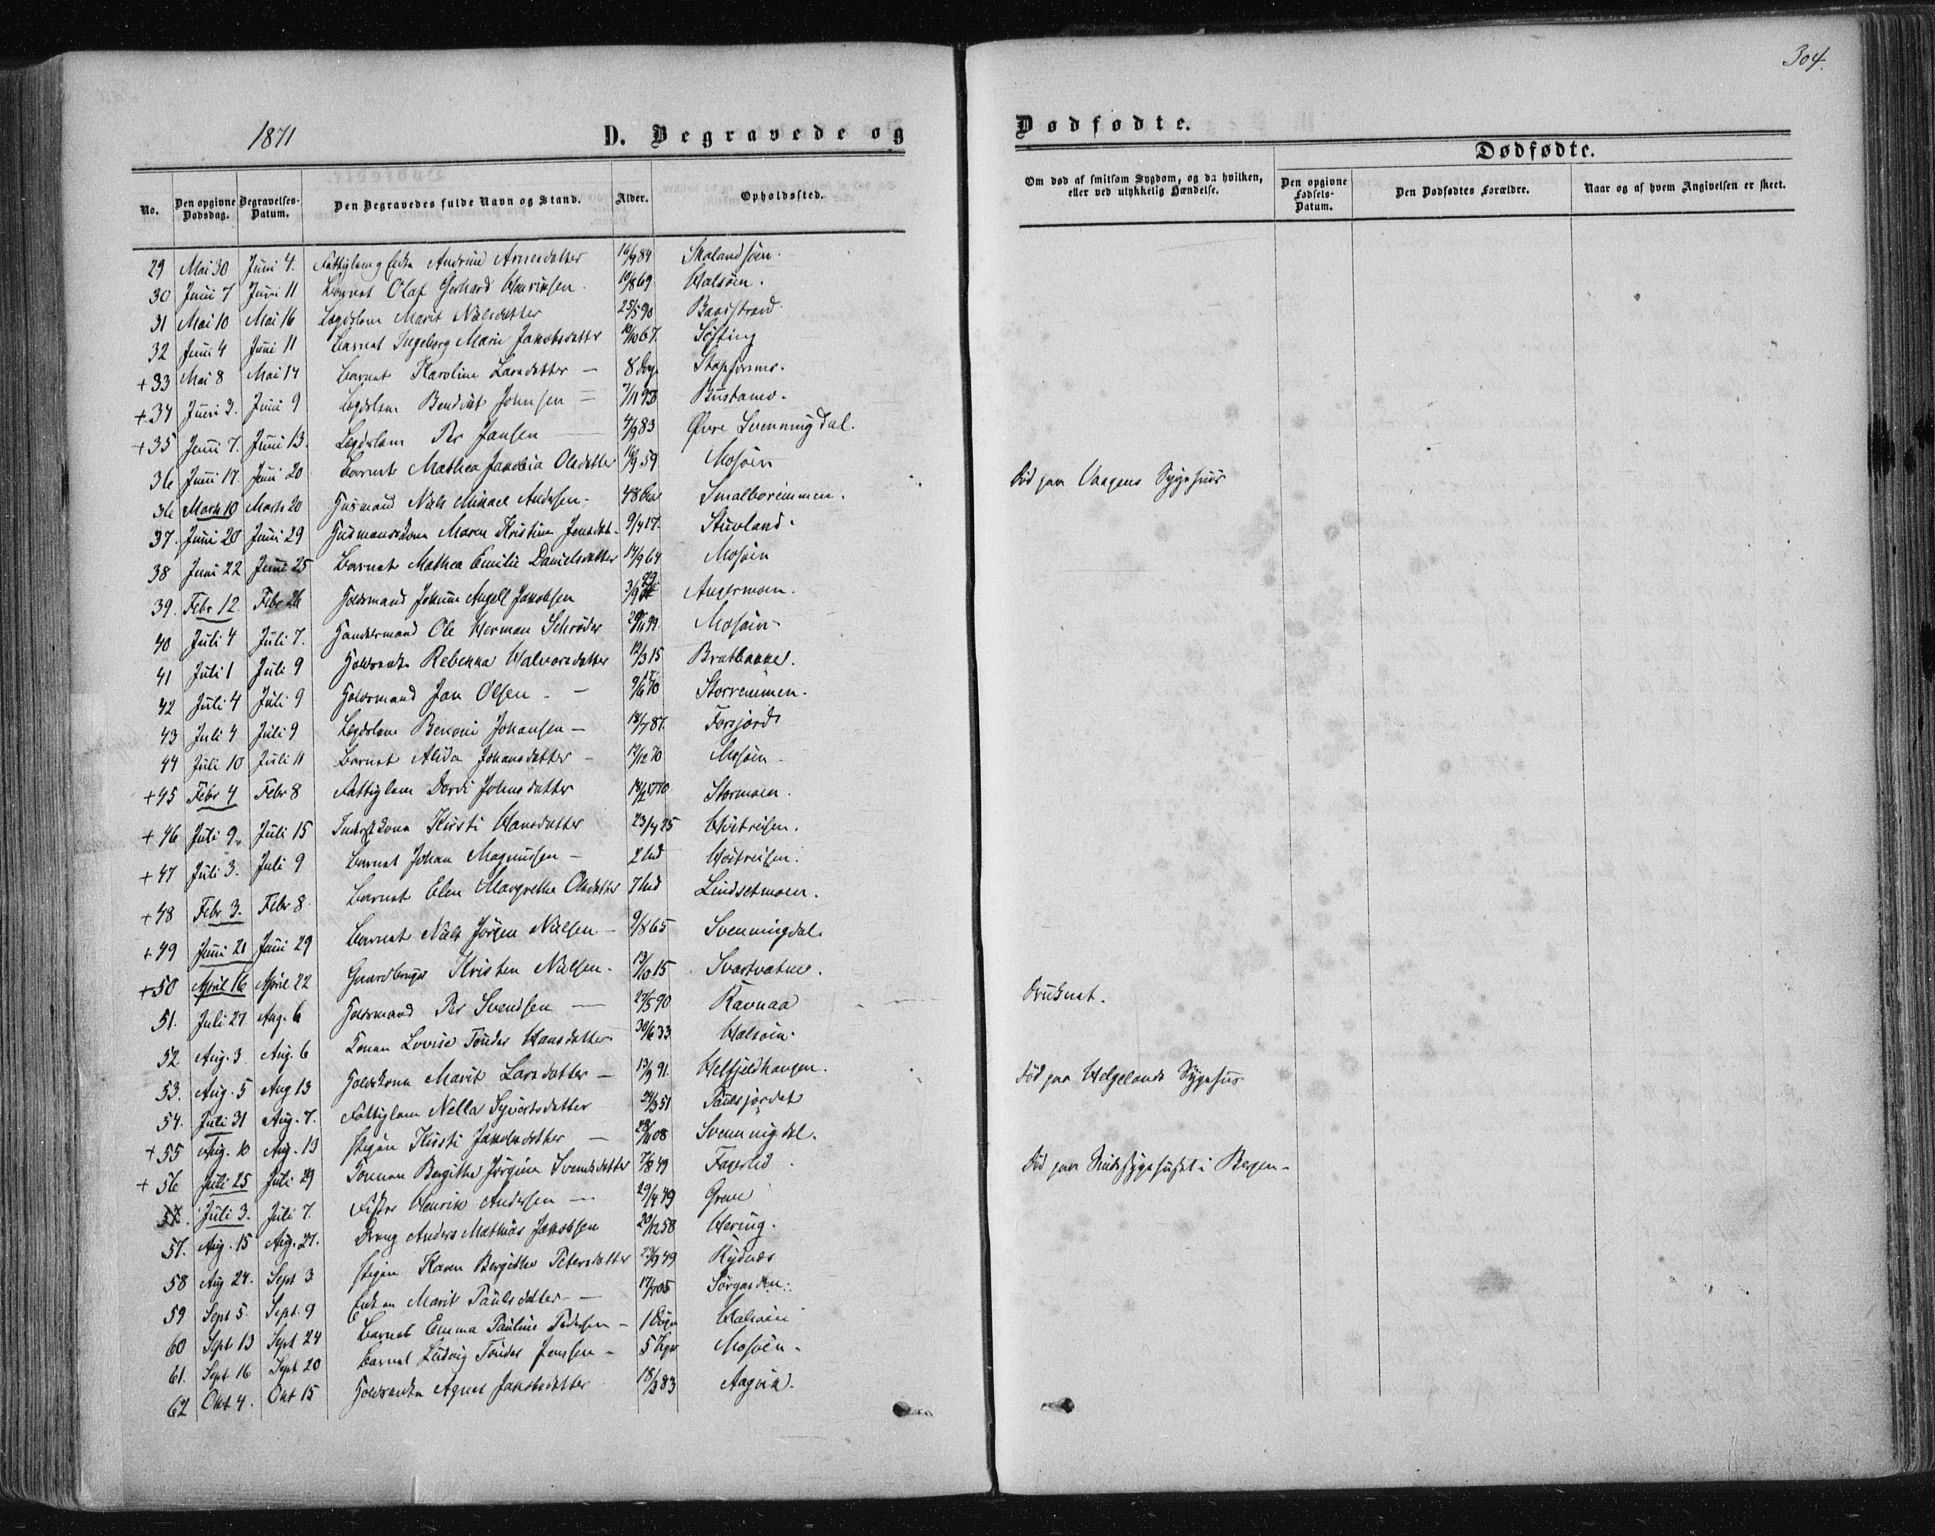 304.
1871
D. Begravede og
Dødfødte.
No. Den opgivne Dødsdag. Begravelses-Datum. Den Begravedes fulde Navn og Stand. Alder. Opholdssted.
Om død af smitsom Sygdom, og da hvilken, eller ved ulykkelig Hændelse.
Dødfødte.
Den opgivne Fødsels-Datum. Den Dødfødtes Forældre. Naar og af hvem Angivelsen er skeet.
29 Mai 30 Juni 4. Fattiglem Enke Andrine Arnesdatter 84 Skalandsøen.
30 Juni 7 Juni 11 Barnet Olaf Gerhard Henriksen. 10/8 69 Halsøen.
31 Mai 10 Mai 16 Lægdslem Marit Nilsdatter 25/5 90 Baadstrand.
32 Juni 4 Juni 11 Barnet Ingeborg Marie Jakobsdatter 10/10 67. Søfting
+ 33 Mai 8 Mai 14 Barnet Karoline Larsdatter — 8 Dage
+ 34 Juni 3. Juni 9 Lægdslem Bendikt Johnsen — 7/11 93 Bustamo.
+ 35 Juni 7. Juni 13. Lægdslem Per Jansen 4/9 83 Øvre Svenningdal.
36 Juni 17. Juni 20 Barnet Mathea Jakobia Olsdatter 59 Mosøen Død paa Vaagens Sygehuus
36 Marts 10 Marts 20 Husmand Niels Mikael Andersen. 48 Smalboremmen.
37. Juni 20 Juni 29 Husmandskone Maren Kristine Jensdat. 9/4 17. Stuvland.
38 Juni 22 Juni 25 Barnet Mathea Emilie Danielsdatter 14/9 64 Mosøen
39. Febr 12. Febr 26 Gaardmand Johan Angell Jakobsen 3/9 29 Angermoen.
40 Juli 4 Juli 7. Handelsmand Ole Herman Schrøder 99 Mosøen
41 Juli 1 Juli 9 Rebekka Halvorsdatter 12/3 15 Bratbakke.
42 Juli 4 Juli 9 Jon Olsen — 9/6 Storremmen.
43 Juli 4 Juli 9 Lægdslem Benoni Johansen — 18/7 87. Forsjord
44 Juli 10 Juli 11 Barnet Alida Johansdatter — 12/12 70 Mosøen
+ 45 Febr 4 Febr 8 Fattiglem Dordi Johnsdatter 1770 Stormoen.
+ 46 Juli 9. Juli 15 Kirsti Hansdatter 23/4 25 Høitreisen.
+ 47 Juli 3. Juli 9 Barnet Johan Magnussen — 2 Høitreisen.
+ 48 Febr 3. Febr 8 Barnet Elen Margrethe Olsdatter 7 Lindsetmoen.
+ 49 Juni 21 Juni 29 Barnet Niels Jørgen Nielsen — 9/8 65 Svenningdal
+ 50 April 16 April 22 Gaardbruger Kristen Nielsen. 15 Svartvatne.
51. Juli 27 Aug. 6 Per Svendsen — 27/5 90 Ravnaa Druknet.
52. Aug. 3 Aug. 6 Konen Lovise Tønder Hansdatter 30/6 33 Halsøen.
53. Aug. 5 Aug 13 Marit Larsdatter — 13/9 91. Helfjeldhaugen. Død paa Helgelands Sygehus
54. Juli 31 Aug. 7. Fattiglem Nella Syvertsdatter 51 Paulsjordet
+ 55 Aug. 10 Aug. 13 Pigen Kirsti Jakobsdatter — 08 Svenningdal.
+ 56 Juli 25 Juli 29 Konen Bergithe Jørgine Svendsdatter 7/8 49 Fagerlid Død paa Sindssygehuset i Bergen
57. Juli 3. Juli 7. Fisker Henrik Andersen — 29/4 49 Greve
57. Aug. 15 Aug. 27. Dreng Anders Mathias Jakobsen 20/12 58 Hering.
58 Aug 24. Sept 3 Pigen Karen Bergithe Petersdatter 49 Rydnæs
59 Sept 5. Sept. 9 Enken Marit Paulsdatter — 05 Sørgarden.
60 Sept 13 Sept 24 Barnet Emma Pauline Pedersen — 1 Døgn Halsøen
61. Sept 16 Sept 20 Barnet Ludvig Tønder Jenssen — 5 Mosøen
62 Okt 4. Okt 15 Agnes Jakobsdatter 18/3 83 Aagvik.